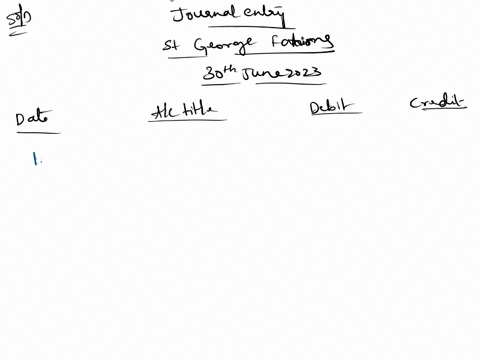 Soln
Journal entry
St George Fations
30th June 2023
Date A/c title Debit Credit
1.